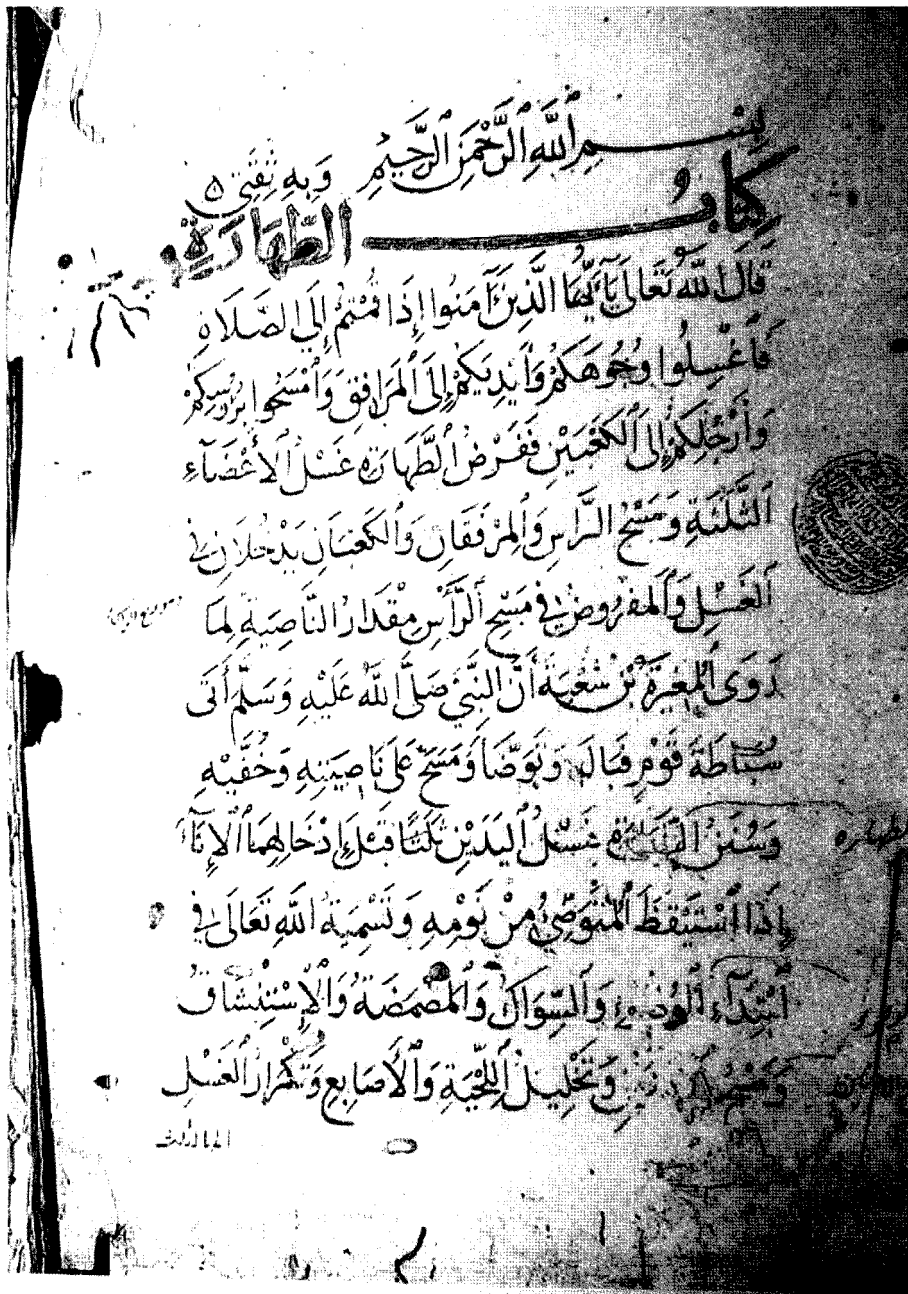 بِسْمِ اللَّهِ الرَّحْمَنِ الرَّحِيمِ وَبِهِ ثِقَتِي
كِتَابُ الطَّهَارَةِ
قَالَ اللَّهُ تَعَالَى يَا أَيُّهَا الَّذِينَ آمَنُوا إِذَا قُمْتُمْ إِلَى الصَّلَاةِ
فَاغْسِلُوا وُجُوهَكُمْ وَأَيْدِيَكُمْ إِلَى الْمَرَافِقِ وَامْسَحُوا بِرُؤُسِكُمْ
وَأَرْجُلَكُمْ إِلَى الْكَعْبَيْنِ فَفَرْضُ الطَّهَارَةِ غَسْلُ الْأَعْضَاءِ
الثَّلَثَةِ وَمَسْحُ الرَّاسِ وَالْمِرْفَقَانِ وَالْكَعْبَانِ يَدْخُلَانِ فِي
الْغَسْلِ وَالْمَفْرُوضُ فِي مَسْحِ الرَّأْسِ مِقْدَارُ النَّاصِيَةِ لِمَا
رَوَى الْمُغِيرَةُ بْنُ شُعْبَةَ أَنَّ النَّبِيَّ صَلَّى اللَّهُ عَلَيْهِ وَسَلَّمَ أَتَى
سُبَاطَةَ قَوْمٍ فَبَالَ وَتَوَضَّأَ وَمَسَحَ عَلَى نَاصِيَتِهِ وَخُفَّيْهِ
وَسُنَنُ الطَّهَارَةِ غَسْلُ الْيَدَيْنِ ثَلَثًا قَبْلَ إِدْخَالِهِمَا الْإِنَاءَ
الطهاره
إِذَا اسْتَيْقَظَ الْمُتَوَضِّئُ مِنْ نَوْمِهِ وَتَسْمِيَةُ اللَّهِ تَعَالَى فِي
ابْتِدَاءِ الْوُضُوءِ وَالسِّوَاكُ وَالْمَضْمَضَةُ وَالْإِسْتِنْشَاقُ
وَمَسْحُ الْأُذُنَيْنِ وَتَخْلِيلُ اللِّحْيَةِ وَالْأَصَابِعِ وَتَكْرَارُ الْغَسْلِ
الى الثلث